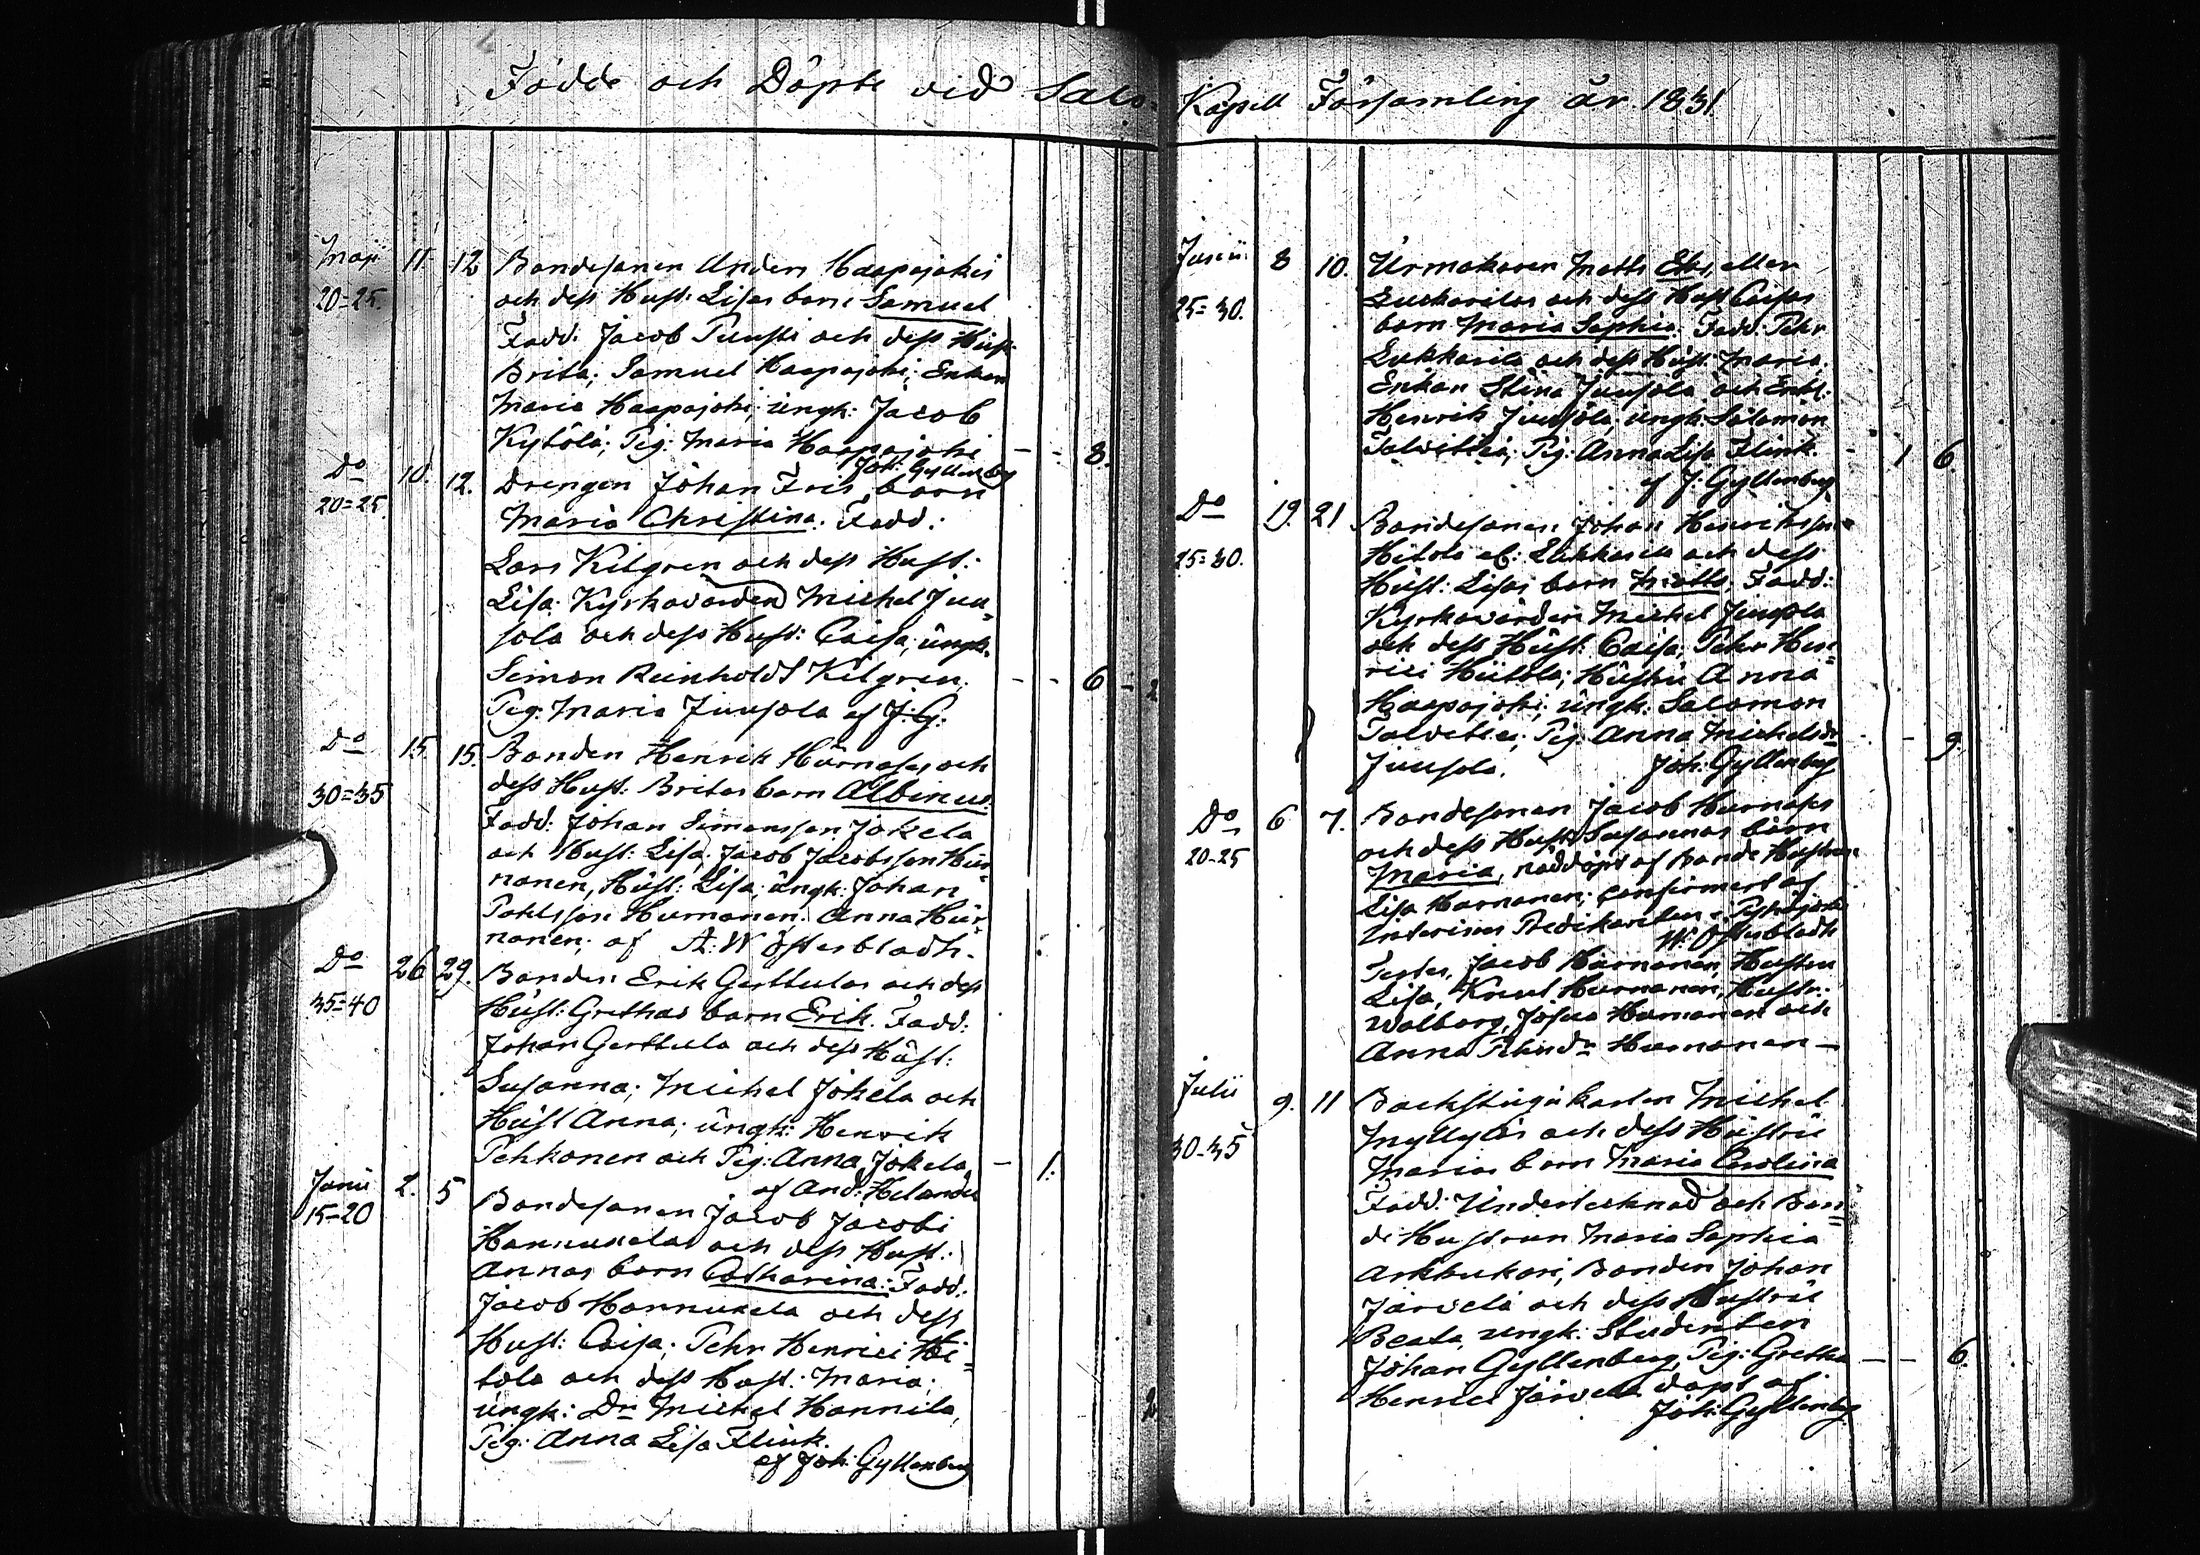 Födde och Döpte vid Salo
Maji 11. 12 Bondesonen Anders Haapajokis
20=25. och dess Hust: Lisas barn Samuel
Fadd: Jacob Tuusti och dess Hust:
Brita; Samuel Haapajoki; Enkan
Maria Haapajoki; ungk: Jacob
Kytölä; Pig: Maria Haapajoki - - 8.
Joh: Gyllenberg
Do 10. 12. Drengen Johan Fris, barn
20=25. Maria Christina. Fadd:
Lars Kilgren och dess Hust:
Lisa; Kyrkovärden Michel Juu=
sola och dess Hust: Caisa; ungk.
Simon Reinhold Kilgren; - - 6 - 2
Pig: Maria Juusola af J: G:
Do 15. 15. Bonden Henrik Hurnases och
30=35 dess Hust: Britas barn Albinus.
Fadd: Johan Simonsson Jokela
och Hust: Lisa; Jacob Jacobsson Hur=
nanen, Hust: Lisa; ungk: Johan
Pahlsson Hurnanen; Anna Hur=
nanen; af A: W Österbladh.
Do 26 29. Bonden Erik Gerttulas och dess
35=40 Hust: Grethas barn Erik. Fadd:
Johan Gerttula och dess Hust:
Susanna; Michel Jokela och
Hust Anna; ungk: Henrik
Pehkonen och Pig: Anna Jokela - 1.
af And: Helander
Junii 2. 5 Bondesonen Jacob Jacobi
15=20 Hannukelas och dess Hust:
Annas barn Catharina: Fadd:
Jacob Hannukela och dess
Hust: Caisa; Pehr Henrici Hi=
tola och dess Hust: Maria;
ungk: Dn Michel Hannila,
Pig: Anna Lisa Flink.
af Joh: Gyllenberg
Kapell Församling år 1831.
Junii 8 10. Urmakaren Matts Eks, eller
25=30. Luukarilas och dess Hust Caisas
barn Maria Sophia. Fadd: Pehr
Lukkarila och dess Hust: Maria.
Enkan Stina Juusola och Enkl:
Henrik Juusola; ungk: Salomon
Talvitie; Pig: Anna Lisa Flink. - 1 6.
af J: Gyllenberg
Do 19. 21 Bondesonen Johan Henriksson
25=30. Hitola el: Lukkarila och dess
Hust: Lisas barn Matts, Fadd:
Kyrkovärden Michel Juusola
och dess Hust: Caisa; Pehr Hen=
rici Hiitola; Hustru Anna
Haapajoki; ungk: Salomon
Talvitie; Pig: Anna Michelsdr - - 9.
Juusola. Joh: Gyllenberg
Do 6 7. Bondesonen Jacob Hurnases
20-25 och dess Hust: Susannas barn
Maria, nöddöpt af Bonde Hustrun
Lisa Hurnanen; confirmert af
Interims Predikanten i Pyhäjoki
W: Österbladh
Testes, Jacob Hurnanen, Hustru
Lisa, Knut Hurnanen, Hustr:
Walborg, Josua Hurnanen och
Anna Pehrsdr Hurnanen -
Julii 9. 11 Backstugukarlen Michel
30-35 Myllyläs och dess Hustru
Marias barn Maria Carolina
Fadd: Undertecknad och Bon=
de Hustrun Maria Sophia
Arkkukari, Bonden Johan
Järvelä och dess Hustru
Beata, ungk: Studenten
Johan Gyllenberg, Pig: Gretha - - 6.
Henrici Järvelä döpt af
Joh: Gyllenberg